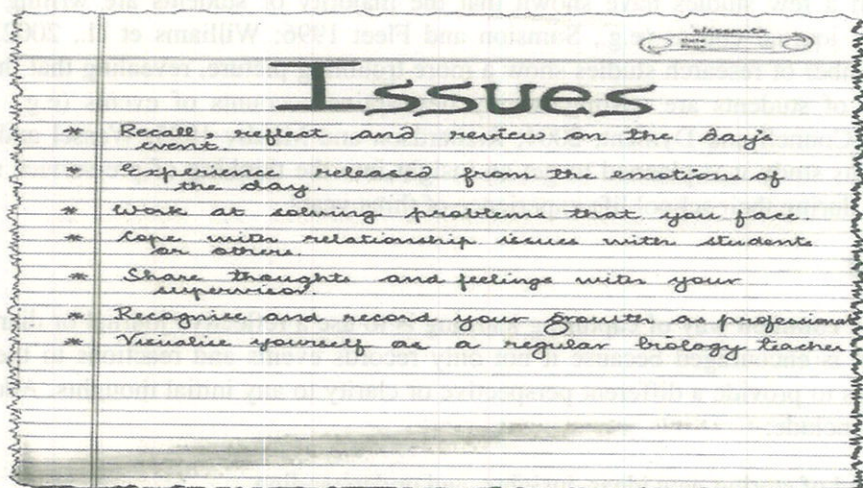 Issues
* Recall, reflect and review on the day's
event.
* Experience released from the emotions of
the day.
* Work at solving problems that you face
* Cope with relationship issues with students
or others.
* Share thoughts and feelings with your
supervisor.
* Recognise and record your growth as professional
* Visualise yourself as a regular biology teacher